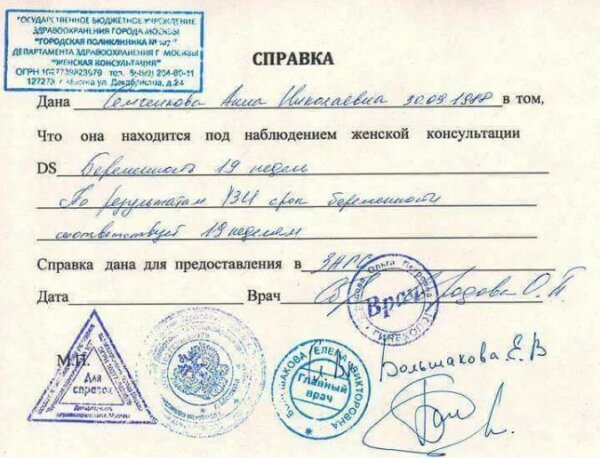 ГОСУДАРСТВЕННОЕ БЮДЖЕТНОЕ УЧРЕЖДЕНИЕ
ЗДРАВООХРАНЕНИЯ ГОРОДА МОСКВЫ
"ГОРОДСКАЯ ПОЛИКЛИНИКА № 107"
ДЕПАРТАМЕНТА ЗДРАВООХРАНЕНИЯ Г. МОСКВЫ
"ЖЕНСКАЯ КОНСУЛЬТАЦИЯ"
ОГРН 1027739823979 тел. 8(499) 204-80-11
127273 г. Москва ул. Декабристов, д.24
СПРАВКА
Дана Семченкова Анна Николаевна в том,
Что она находится под наблюдением женской консультации
DS Беременность 19 недель
По результатам УЗИ срок беременности
соответствует 19 неделям
Справка дана для предоставления в ЗАГС
Дата Врач О.П.
Ольга Петровна
Врач
М.П.
Для справок
Департамент здравоохранения Москвы
БОЛЬШАКОВА ЕЛЕНА ВИКТОРОВНА
Главный врач
Большакова Е.В